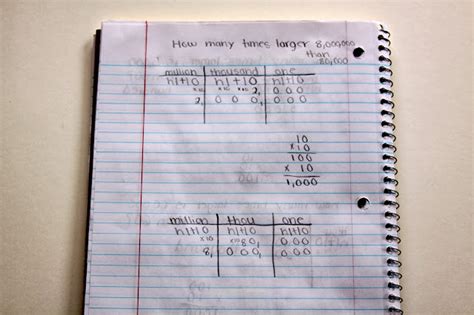 How many times larger 8,000,000
than
80,000
million thousand one
h|t|o h|t|o h|t|o
x10 x10 2, 0 0 0
2, 0 0 0, 0 0 0
10
x 10
100
x 10
1,000
million thou one
h|t|o h|t|o h|t|o
x10 80, 0 0 0
8, 0 0 0, 0 0 0